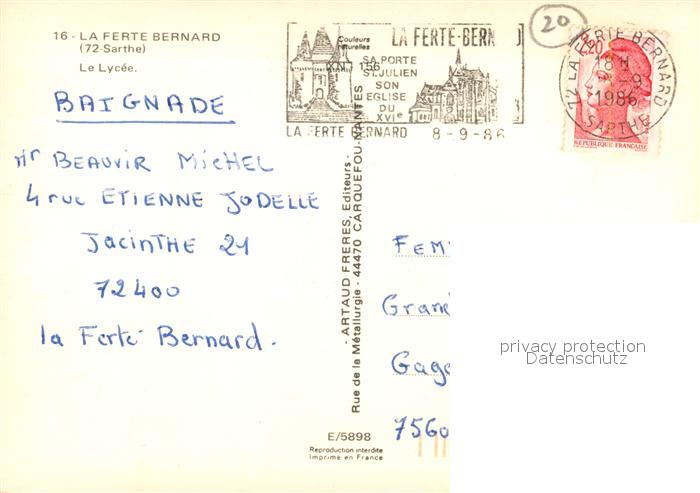 16 - LA FERTE BERNARD
(72-Sarthe)
Le Lycée.
BAIGNADE
Mr BEAUVIR MICHEL
4 rue ETIENNE JODELLE
JACINTHE 21
72400
la Ferté Bernard.
Couleurs
naturelles
LA FERTE-BERN
SA PORTE
ST JULIEN
SON
EGLISE
DU
XVIe
LA FERTE BERNARD 8-9-86
20
72 LA FERTE BERNARD
18H
-9
1986
SARTHE
2,20
REPUBLIQUE FRANÇAISE
- ARTAUD FRERES, Editeurs -
Rue de la Métallurgie - 44470 CARQUEFOU-NANTES
FEM
Gran
Gage
7560
privacy protection
Datenschutz
E/5898
Reproduction interdite
Imprimé en France